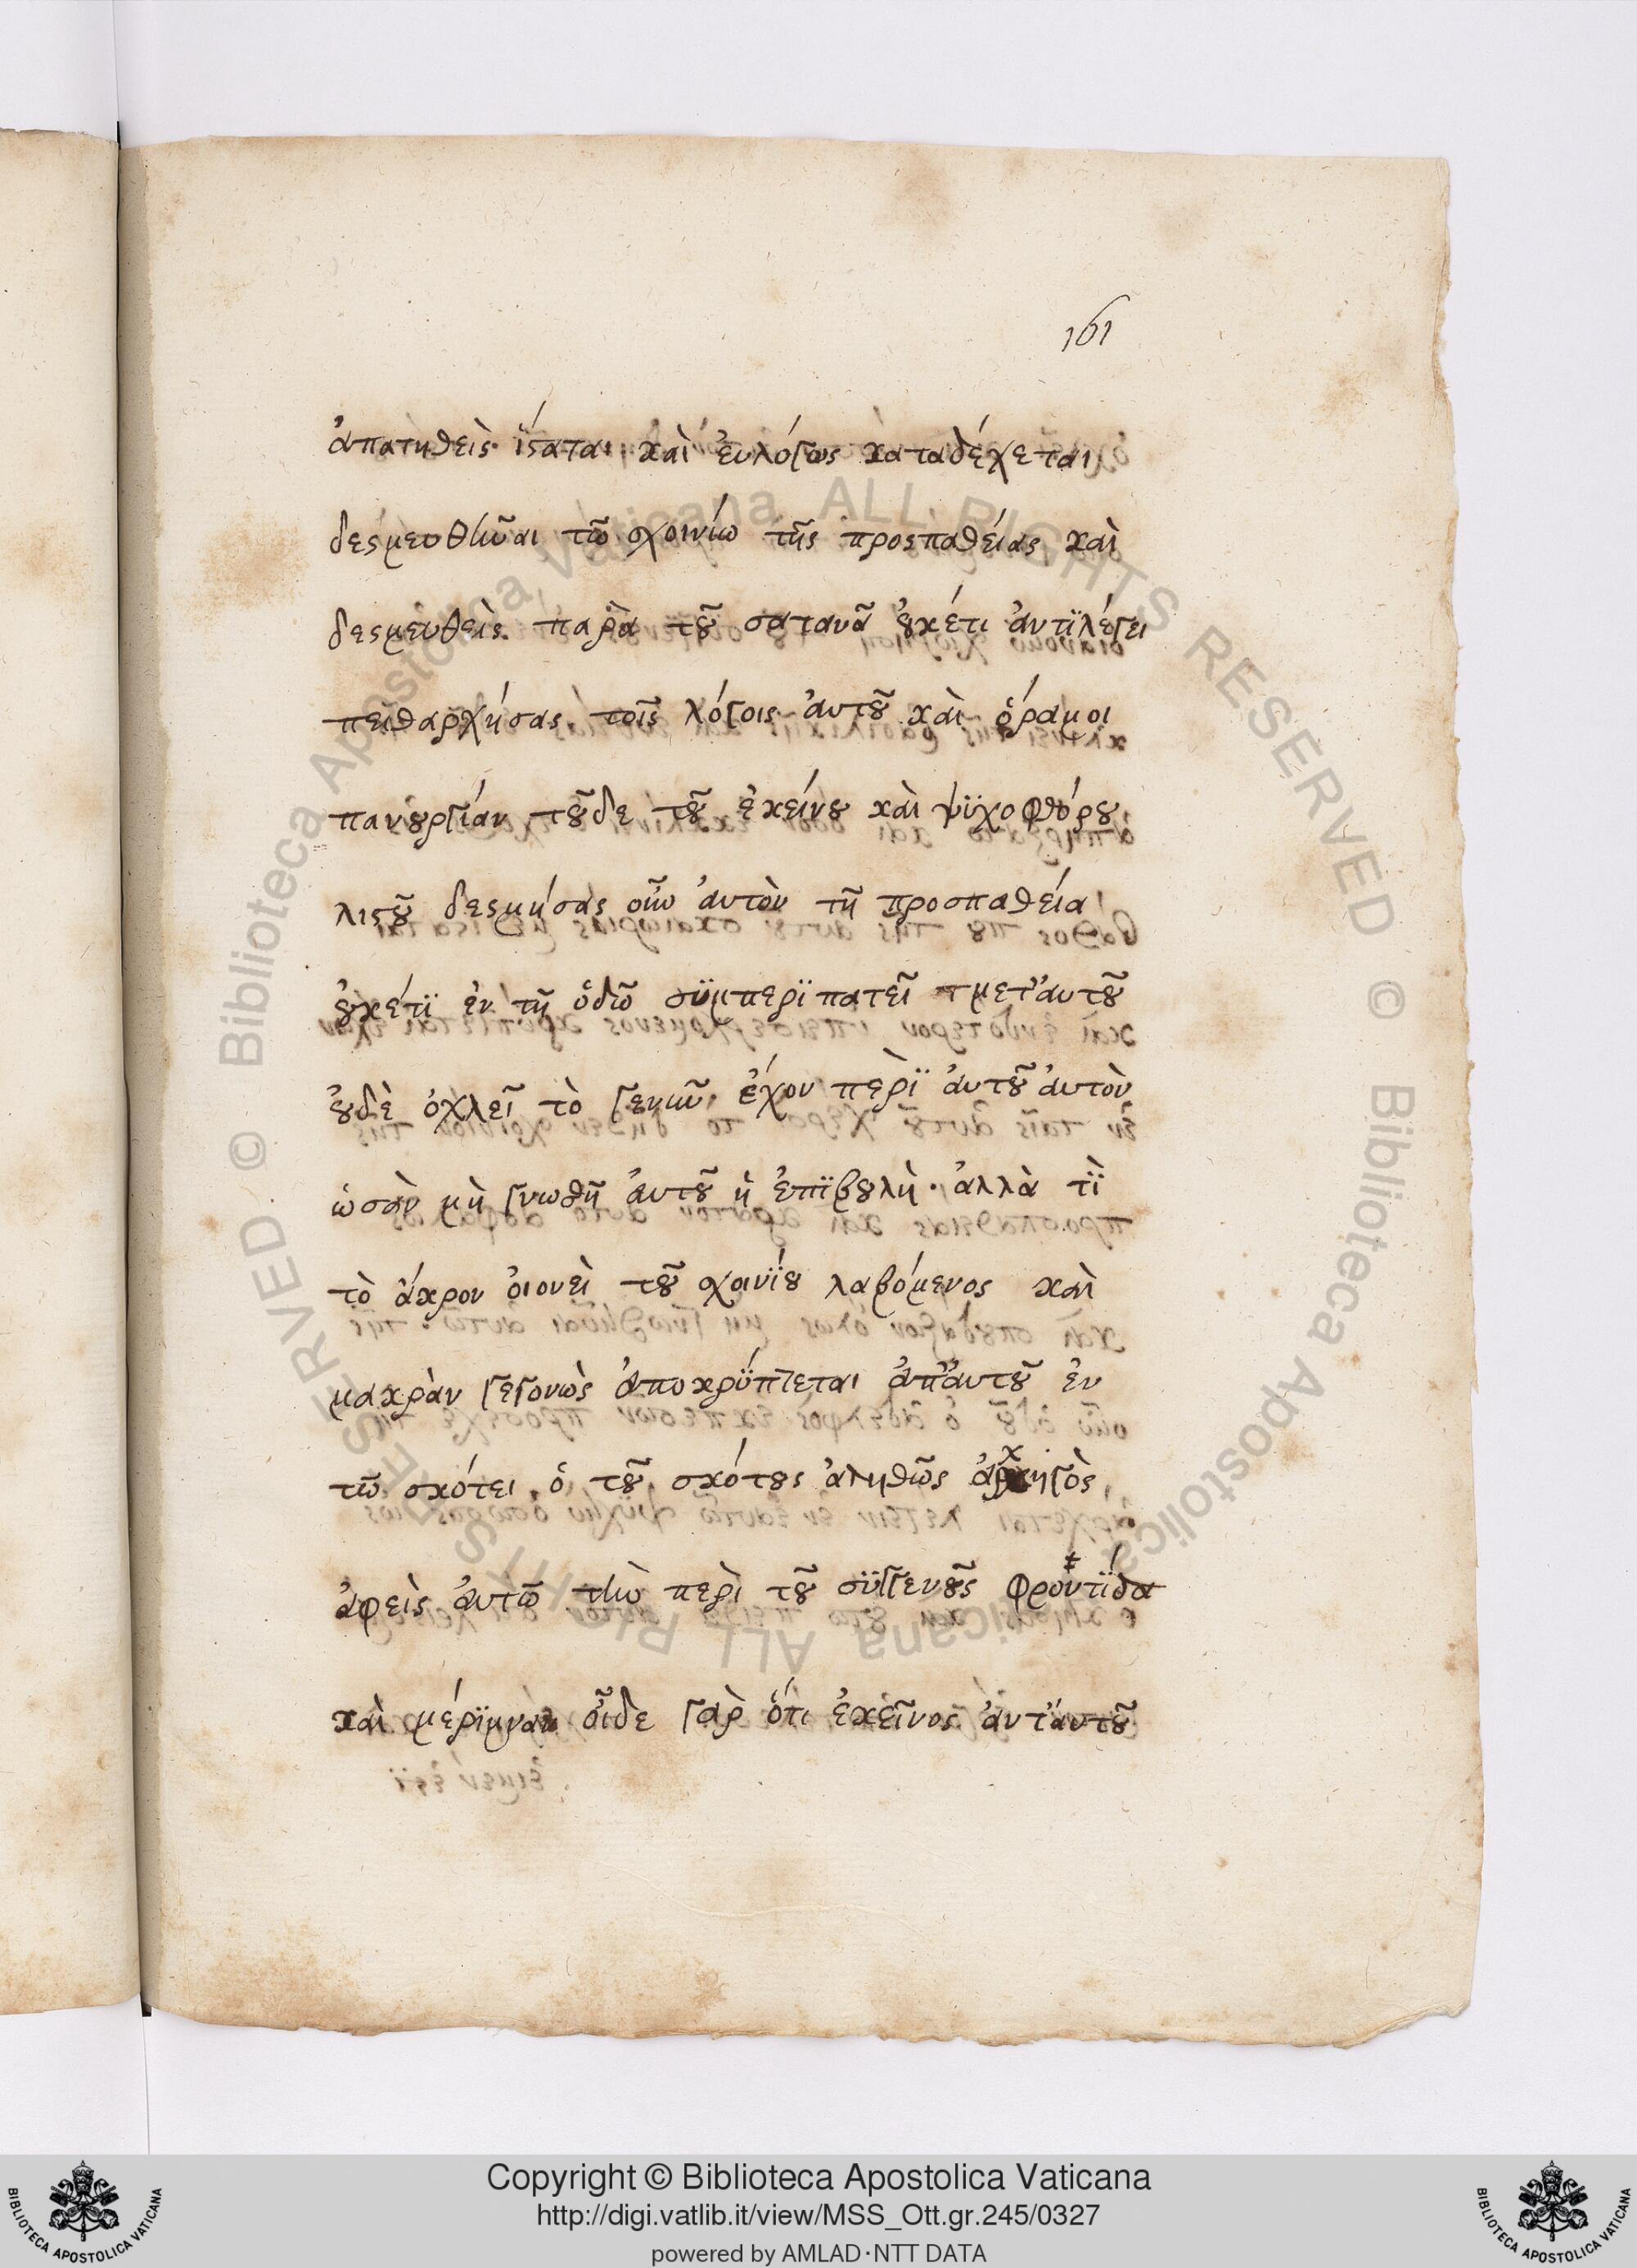 161
ἀπατηθεὶς ἵσταται καὶ ἐυλόγως καταδέχεται
δεσμευθῆναι τῶ σχοινίω τῆς προσπαθείας καὶ
δεσμευθεὶς παρὰ τοῦ σατανᾶ ὀυκέτι ἀντϊλέγει
πειθαρχήσας τοῖς λόγοις ἀυτοῦ καὶ ὅραμοι
πανουργίαν τοῦδε τοῦ ἐκείνου καὶ ψϋχοφθόρου
λιστοῦ δεσμήσας οὖν ἀυτὸν τῆ προσπαθεία
ὀυκέτϊ ἐν τῆ ὁδῶ σϋμπερϊπατεῖ μετ' ἀυτοῦ
ὀυδὲ ὀχλεῖ τὸ γενοῦν ἐχον περὶ ἀυτοῦ ἀυτὸν
ὡσὰν μὴ γνωθῆ ἀυτοῦ ἡ ἐπϊβουλὴ · ἀλλὰ τῒ
τὸ ἄκρον ὁιονεὶ τοῦ σχοινΐου λαβόμενος καὶ
μακρὰν γεγονὼς ἀποκρΰπτεται ἀπ' ἀυτοῦ ἐν
τῶ σκότει ὁ τοῦ σκότους ἀληθῶς ἀρχηγὸς
ἀφεὶς ἀυτῶ τὴν περὶ τοῦ σϋγγενοῦς φροντΐδα
καὶ μέρϊμναν οἶδε γὰρ ὅτι ἐκεῖνος ἀντ' ἀυτοῦ
Copyright © Biblioteca Apostolica Vaticana
http://digi.vatlib.it/view/MSS_Ott.gr.245/0327
powered by AMLAD·NTT DATA
BIBLIOTECA APOSTOLICA VATICANA
BIBLIOTECA APOSTOLICA VATICANA
© Biblioteca Apostolica Vaticana ALL RIGHTS RESERVED
© Biblioteca Apostolica Vaticana ALL RIGHTS RESERVED